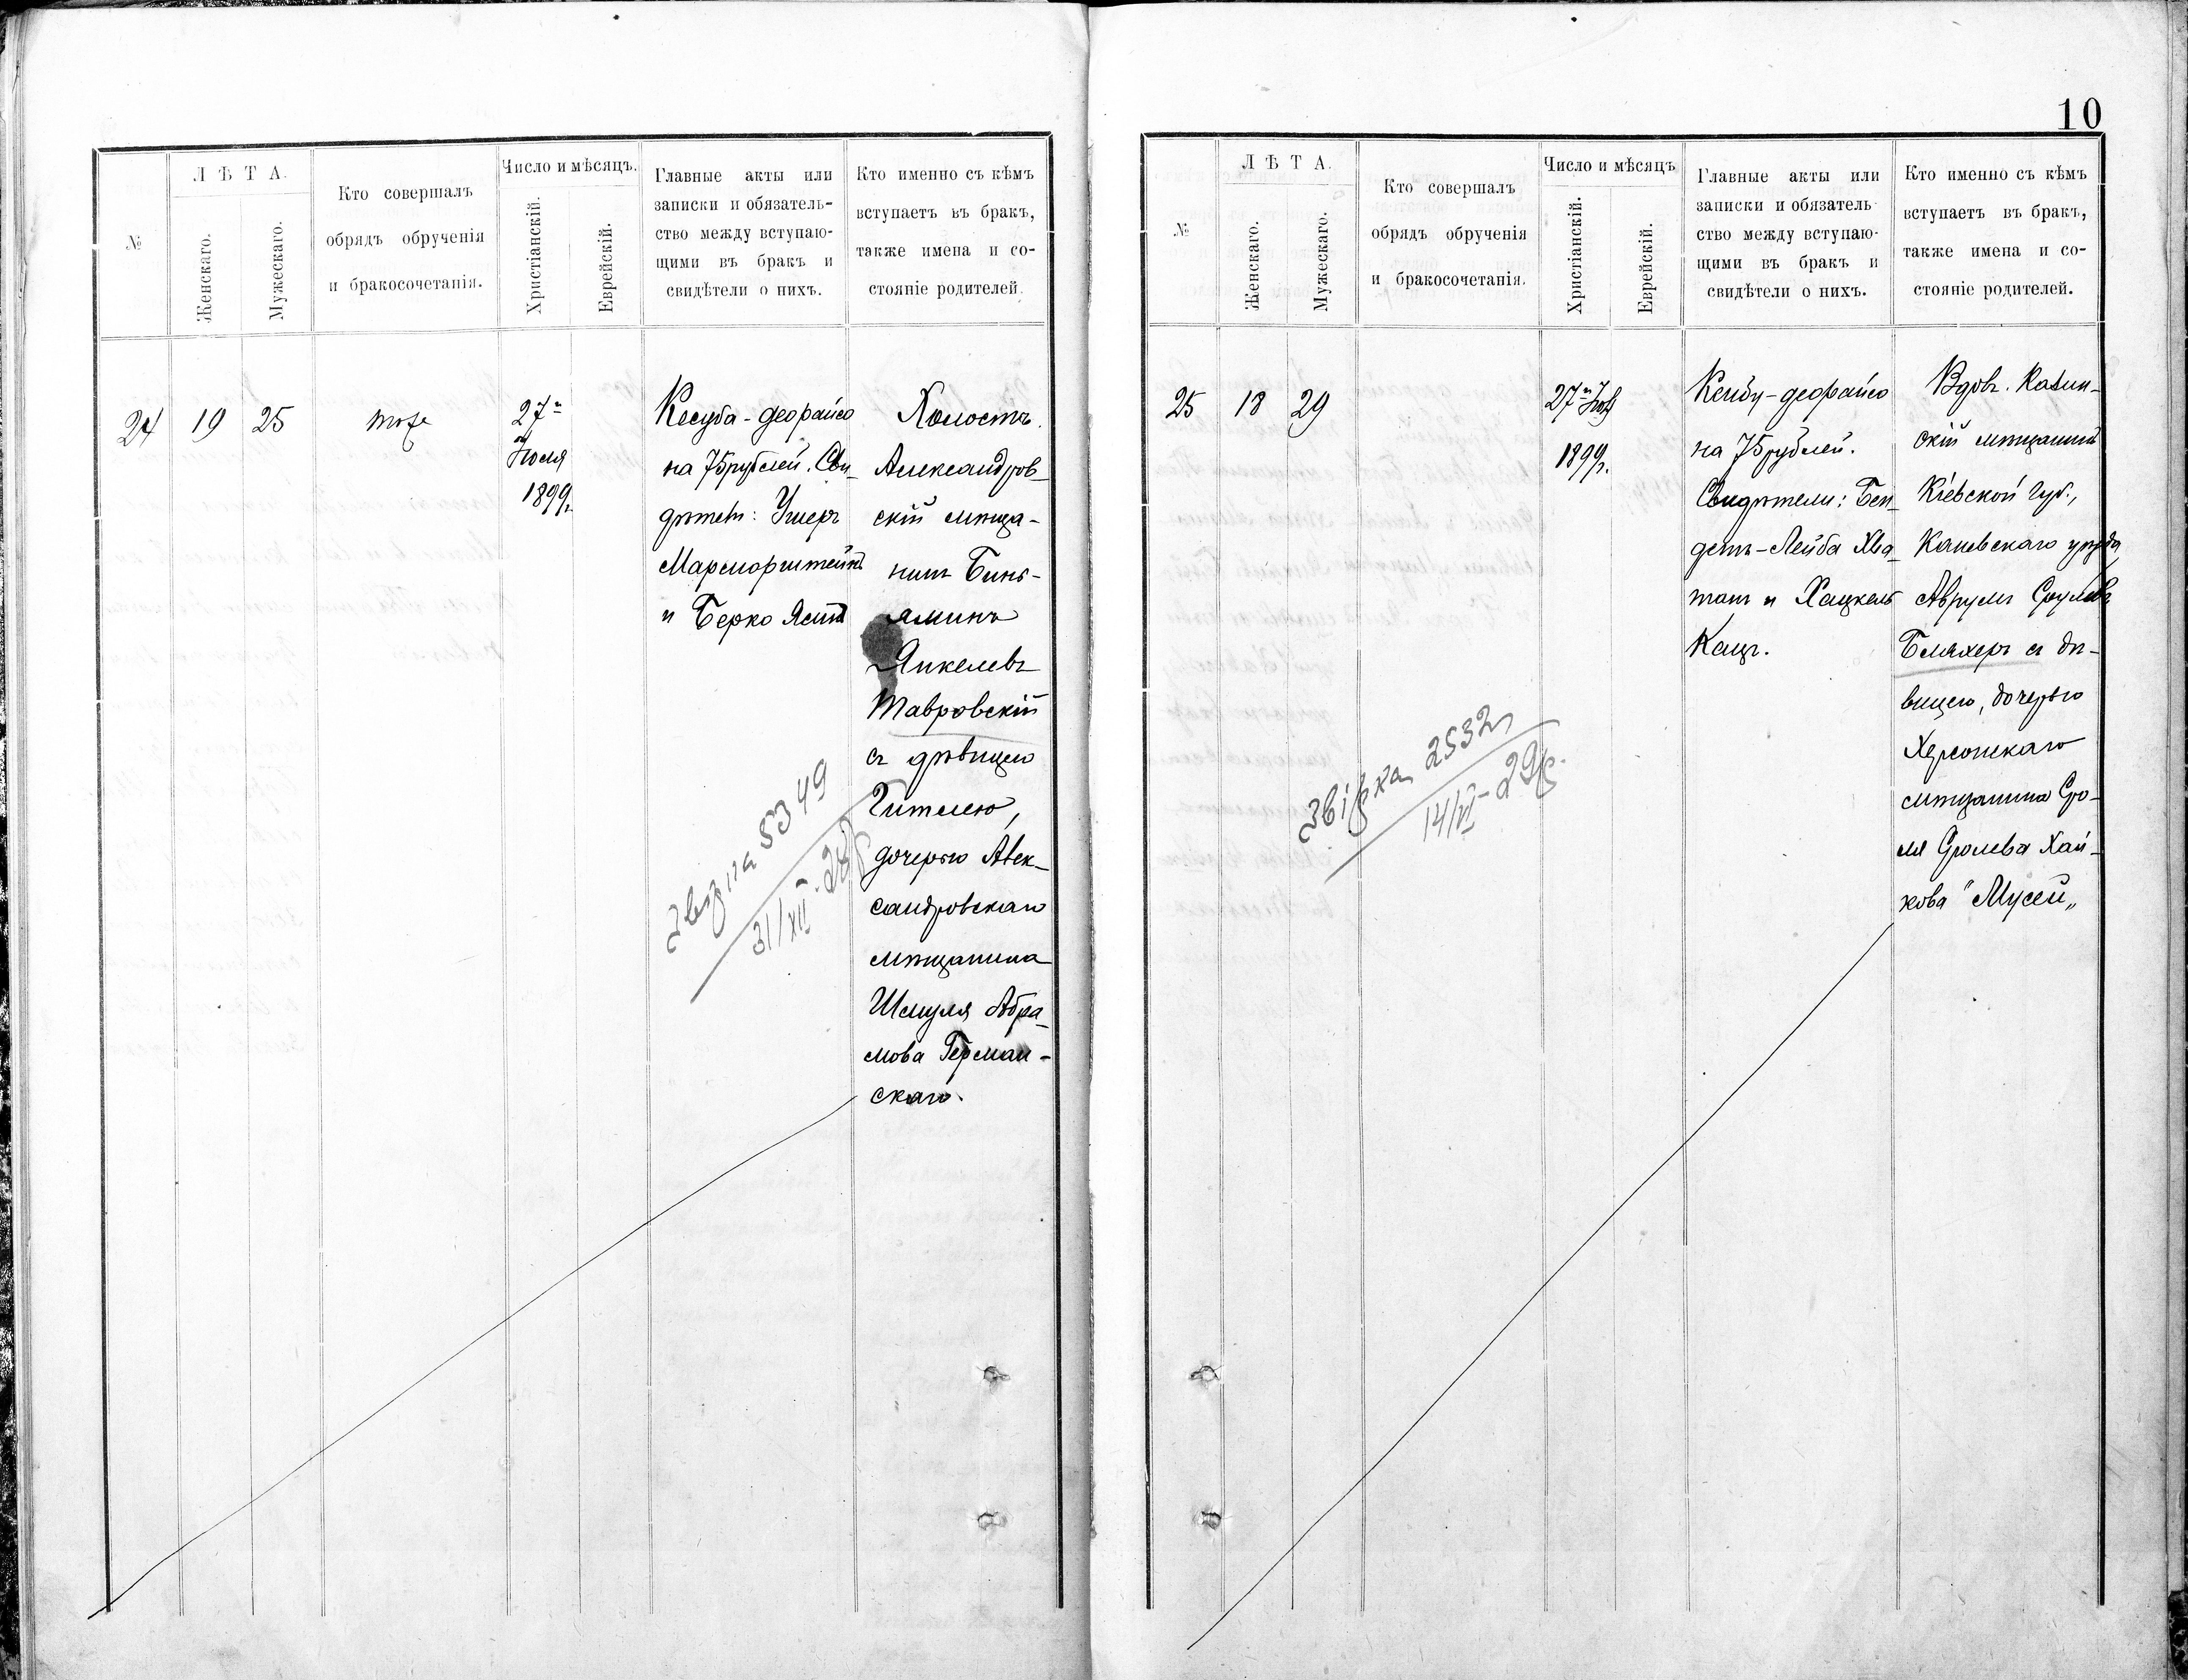 10
№
Л Ѣ Т А.
Женскаго.
Мужескаго.
Кто совершалъ
обрядъ обрученія
и бракосочетанія.
Число и мѣсяцъ.
Христіанскій.
Еврейскій.
Главные акты или
записки и обязатель-
ство между вступаю-
щими въ бракъ и
свидѣтели о нихъ.
Кто именно съ кѣмъ
вступаетъ въ бракъ,
также имена и со-
стояніе родителей.
24
19
25
тоже
27
Іюля
1899 г.
Кесуба-деорайсо
на 75 рублей. Сви-
дѣтели: Ушеръ
Марморштейнъ
и Берко
Холостъ
Александров-
скій мѣща-
нинъ Бинь-
яминъ
Янкелевъ
Тавровскій
съ дѣвицею
Гителею,
дочерью Алек-
сандровскаго
мѣщанина
Шмуля Абра-
мова Герман-
скаго.
5349
31/XII
№
Л Ѣ Т А.
Женскаго.
Мужескаго.
Кто совершалъ
обрядъ обрученія
и бракосочетанія.
Число и мѣсяцъ
Христіанскій.
Еврейскій.
Главные акты или
записки и обязатель-
ство между вступаю-
щими въ бракъ и
свидѣтели о нихъ.
Кто именно съ кѣмъ
вступаетъ въ бракъ,
также имена и со-
стояніе родителей.
25
18
29
27
1899 г.
деорайсо
на 75 рублей.
Свидѣтели: Бен-
Лейба
и Хацкель
Кацъ.
Вдовъ.
скій мѣщанинъ
Кіевской губ.,
Каневскаго уѣзда,
Аврумъ Сруловъ
Бляхеръ съ дѣ-
вицею, дочерью
Херсонскаго
мѣщанина Сро-
ля Сролева Хай-
кова "Мусей„
2532
14/VI - 29 р.